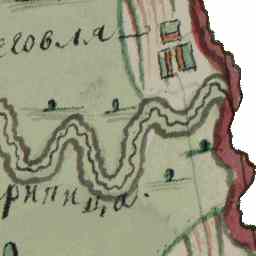 еговля
рипица.